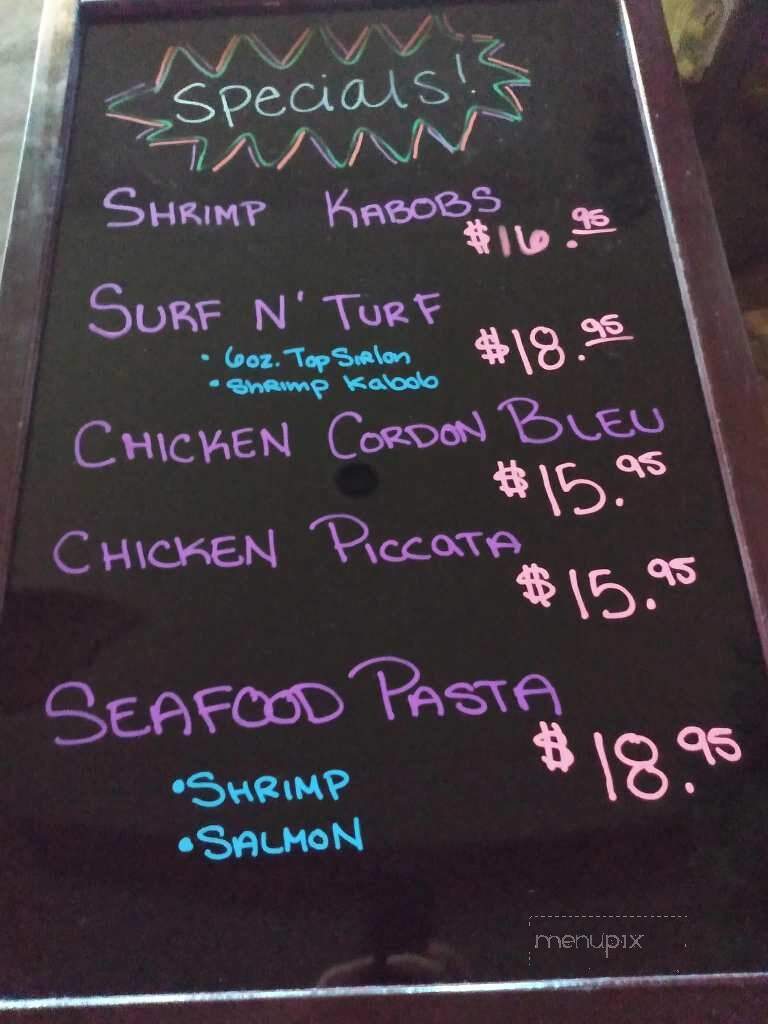 Specials!
SHRIMP KABOBS
$16.95
SURF N' TURF
• 6oz. Top Sirlon
$18.95
• Shrimp Kabob
CHICKEN CORDON BLEU
$15.95
CHICKEN PICCATA
$15.95
SEAFOOD PASTA
$18.95
• SHRIMP
• SALMON
menupix